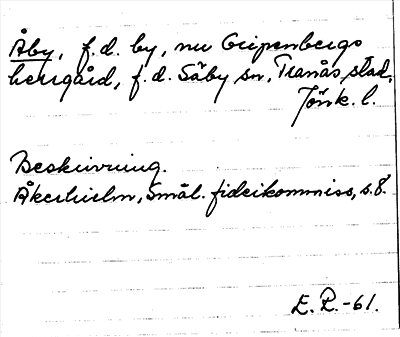 Åby, f.d. by, nu Gripenbergs
herrgård, f.d. Säby sn, Tranås stad,
Jönk. l.
Beskrivning.
Åkerhielm, Smål. fideikommiss, s. 8.
E. P. -61.